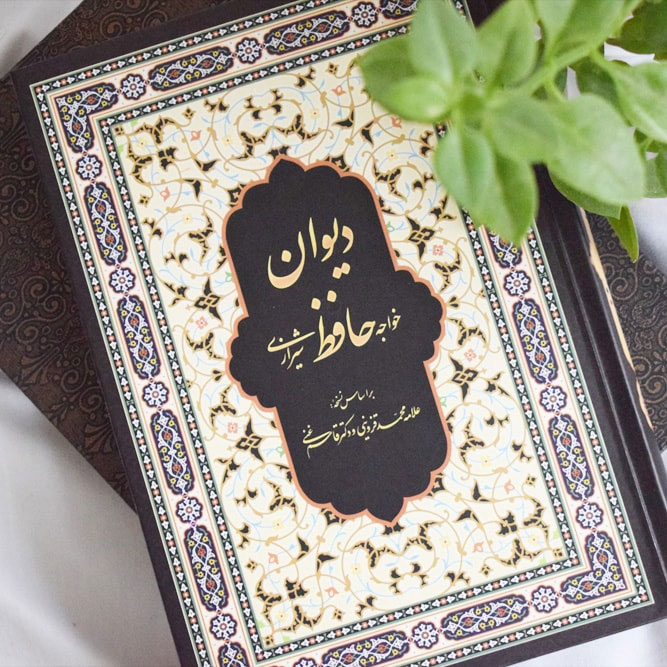 دیوان
خواجه حافظ شیرازی
بر اساس نسخهٔ
علامه محمد قزوینی و دکتر قاسم غنی